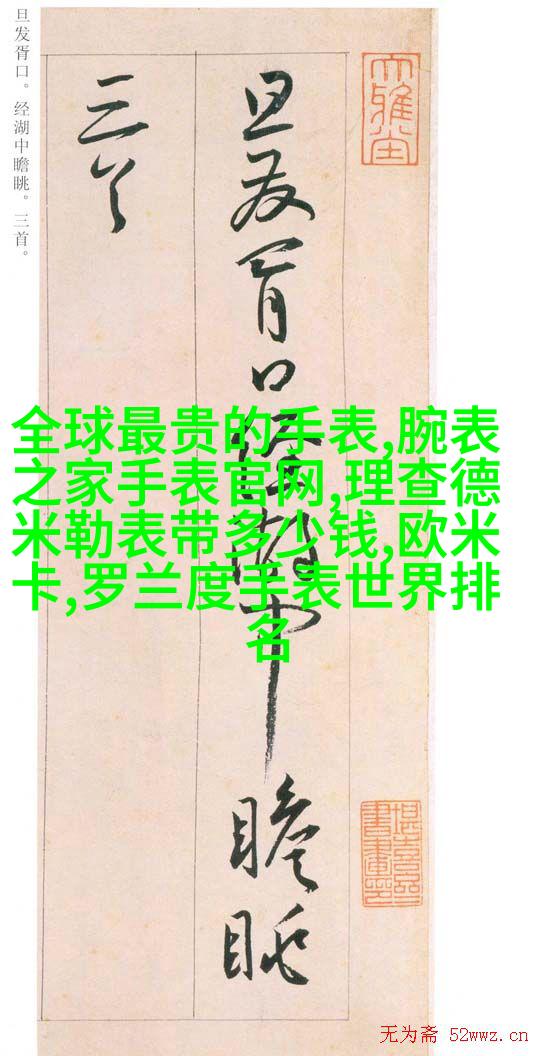 旦发胥口。经湖中瞻眺。三首。
旦发胥口经湖中瞻眺
三首
大雅室
全球最贵的手表,腕表
之家手表官网,理查德
米勒表带多少钱,欧米
卡,罗兰度手表世界排
名
无为斋 52wwz.cn